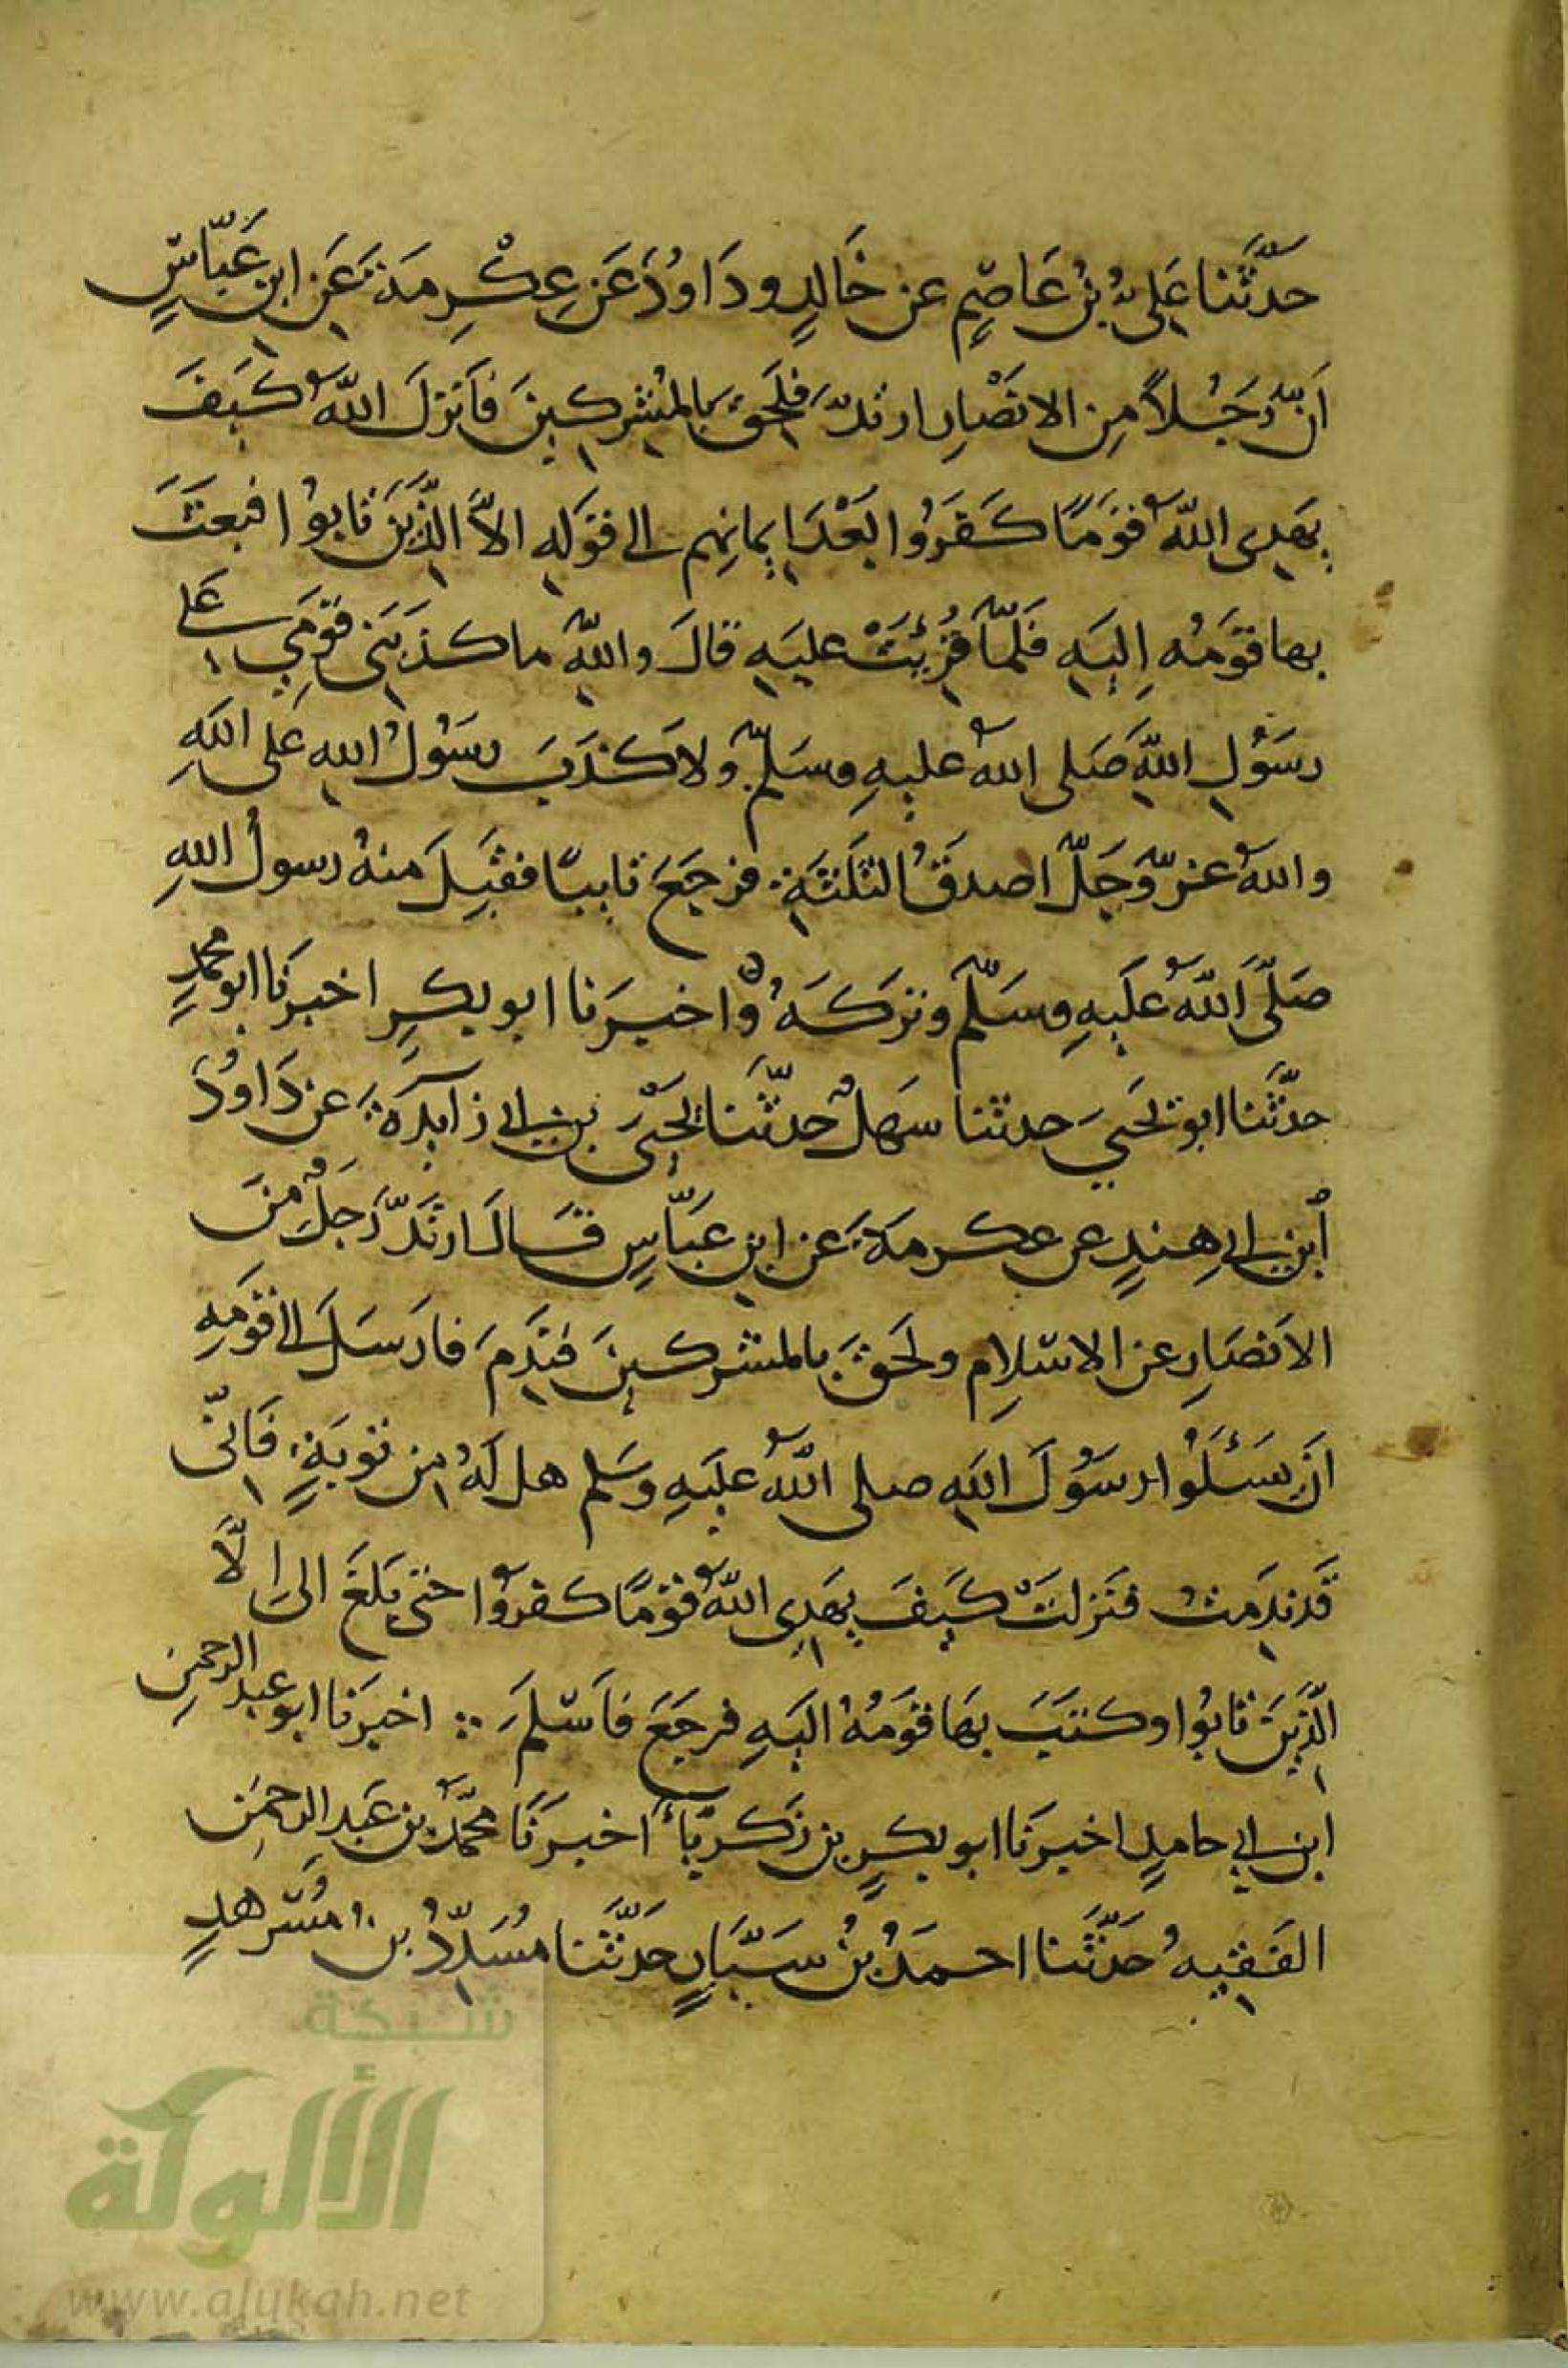 حَدَّثَنا عَلِىُّ بْنُ عَاصِمٍ عن خَالِدٍ ودَاوُدَ عَن عِكْرِمَةَ عَن ابنِ عَبّاسٍ
اَنّ رَجُلاً مِن الانصَارِ ارتدّ فلَحِقَ بِالمُشرِكينَ فَاَنزلَ اللّهُ كَيفَ
يهَدِى اللّهُ قَومًا كَفَرُوا بَعْدَ اِيمانِهِم الى قَولِهِ الاَّ الَّذِينَ تابوُا فبعَثَ
بها قَومُه اِلَيهِ فَلَمّا قُرِئَتْ عليَهِ قالَ واللّهِ ما كذَبَنِى قَومِي على
رسَوُلِ اللّهِ صَلى اللهُ عليهِ وسَلمّ ولاَ كَذَبَ رسَوُلُ اللهِ عَلى اللهِ
واللهُ عَزّ وَجَلّ اصدقُ الثلَثَةِ فرجَعَ تايبًا فقَبِلَ منهُ رسولُ اللهِ
صَلَّى اللّهُ عَلَيهِ وسَلّمَ وتَركَهُ واخبرَنا ابو بكرٍ اخبرَنَا ابو محمدٍ
حدثَّنا ابو يَحيىَ حدثنا سَهلٌ حدثّنَا يَحْيىَ بن ابي زآيدَةَ عن دَاوُدَ
اُبن ابي هِندٍ عن عكرمَةَ عَن ابنِ عَبّاسٍ قَالَ ارتَدّ رَجلٌ مِنَ
الاَنصَارِ عن الاسْلامِ ولَحِقَ بالمشركينَ فندِمَ فارَسَلَ الى قَومِهِ
اَن يَسئَلوُا رسَوُلَ اللهِ صلى اللّهُ عليَهِ وسَلم هل لَهُ مِن تَوبَةٍ فَاِنّى
قَد نَدِمَتُ فنَزلتَ كَيفَ يهَدِى اللّهُ قومًا كفَروُا حتى بَلغَ الى اِلَّا
الَّذِينَ تابوُا وكتبَ بهَا قَومُهُ اليَهِ فرجَعَ فاَسْلمَ ∴ اخبَرَنا ابو عبد الرحمنِ
ابن ابي حامدٍ اخبرَنا ابو بكرٍ بن زَكَريّآءَ اخبرَنَا محمّدُ بن عَبدِ الرحمنِ
الفَقيهُ حَدثَّنَا احمدُ بنُ سَيَّارٍ حَدثَّنَا مُسَدّدُ بنُ مُسَرهدٍ
شبكة
الألوكة
www.alukah.net